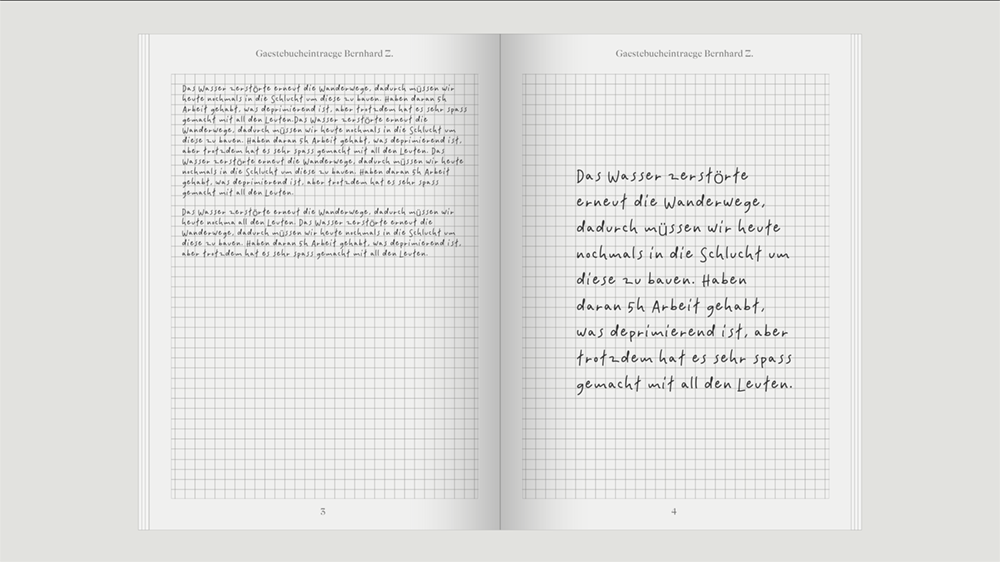 Gaestebucheintraege Bernhard Z.
Das Wasser zerstörte erneut die Wanderwege, dadurch müssen wir
heute nochmals in die Schlucht um diese zu bauen. Haben daran 5h
Arbeit gehabt, was deprimierend ist, aber trotzdem hat es sehr spass
gemacht mit all den Leuten.Das Wasser zerstörte erneut die
Wanderwege, dadurch müssen wir heute nochmals in die Schlucht um
diese zu bauen. Haben daran 5h Arbeit gehabt, was deprimierend ist,
aber trotzdem hat es sehr spass gemacht mit all den Leuten. Das
Wasser zerstörte erneut die Wanderwege, dadurch müssen wir heute
nochmals in die Schlucht um diese zu bauen. Haben daran 5h Arbeit
gehabt, was deprimierend ist, aber trotzdem hat es sehr spass
gemacht mit all den Leuten.
Das Wasser zerstörte erneut die Wanderwege, dadurch müssen wir
heute nochma all den Leuten. Das Wasser zerstörte erneut die
Wanderwege, dadurch müssen wir heute nochmals in die Schlucht um
diese zu bauen. Haben daran 5h Arbeit gehabt, was deprimierend ist,
aber trotzdem hat es sehr spass gemacht mit all den Leuten.
3
Gaestebucheintraege Bernhard Z.
Das Wasser zerstörte
erneut die Wanderwege,
dadurch müssen wir heute
nochmals in die Schlucht um
diese zu bauen. Haben
daran 5h Arbeit gehabt,
was deprimierend ist, aber
trotzdem hat es sehr spass
gemacht mit all den Leuten.
4